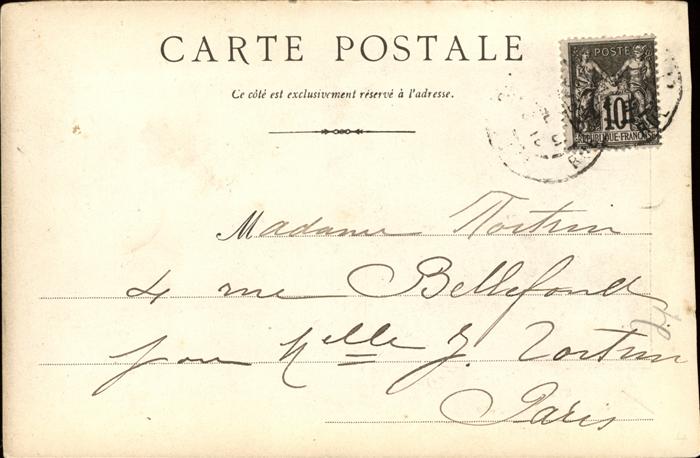 CARTE POSTALE
Ce côté est exclusivement réservé à l'adresse.
POSTE
10
REPUBLIQUE FRANÇAISE
Madame Tortrin
4 rue Bellefond
pour Melle J. Tortrin
Paris